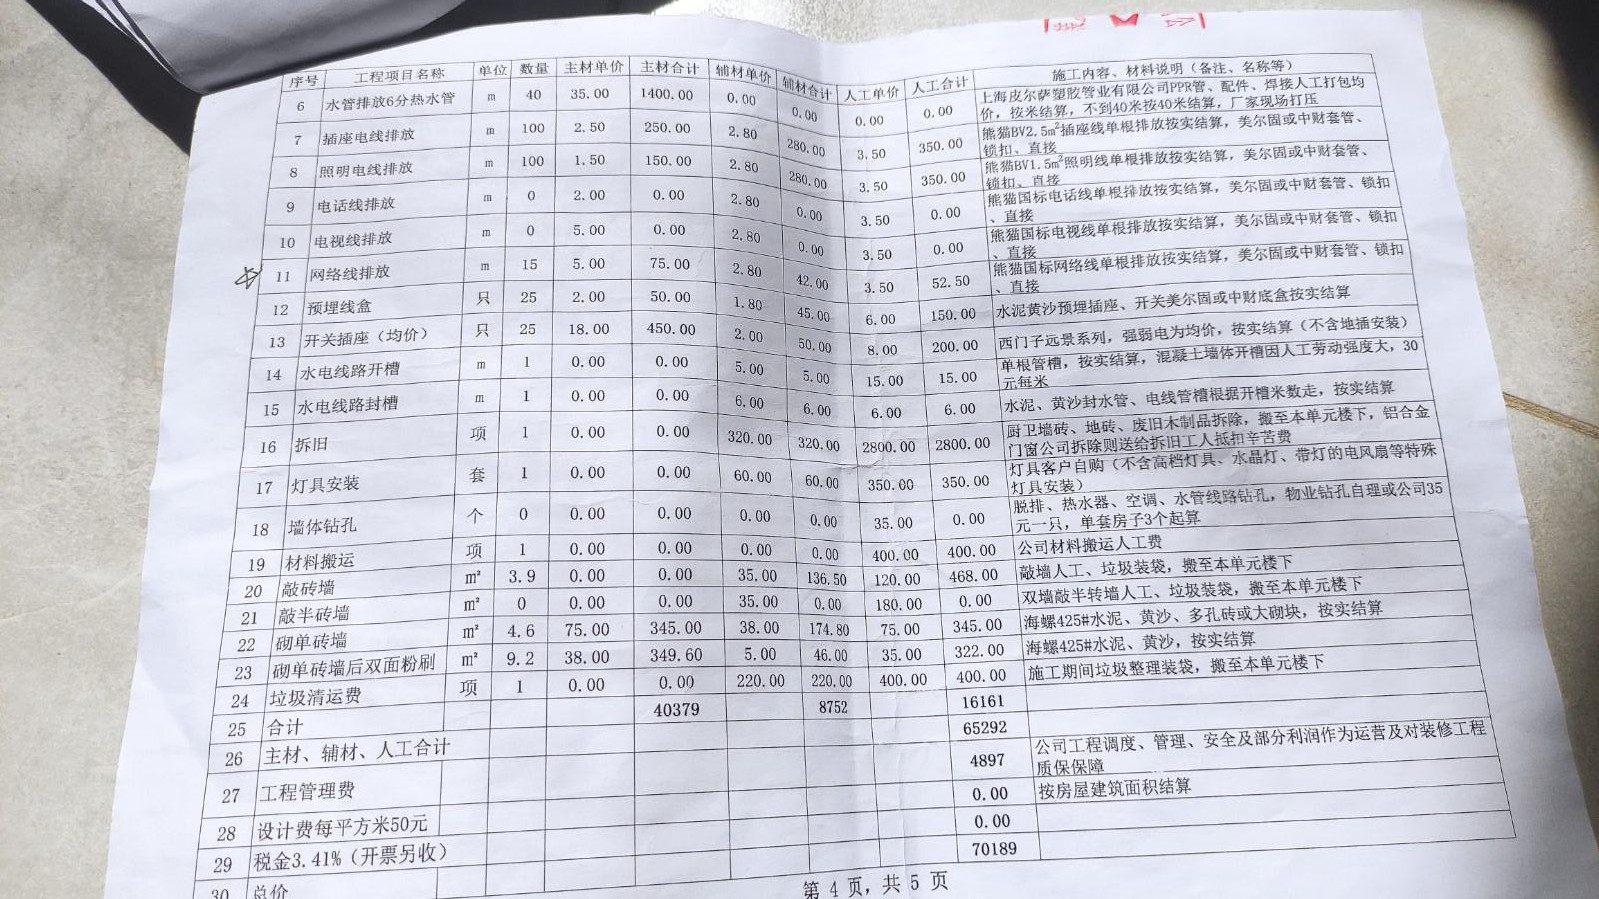 序号 工程项目名称 单位 数量 主材单价 主材合计 辅材单价 辅材合计 人工单价 人工合计 施工内容、材料说明（备注、名称等）
6 水管排放6分热水管 m 40 35.00 1400.00 0.00 0.00 0.00 0.00 上海皮尔萨塑胶管业有限公司PPR管、配件、焊接人工打包均
价，按米结算，不到40米按40米结算，厂家现场打压
7 插座电线排放 m 100 2.50 250.00 2.80 280.00 3.50 350.00 熊猫BV2.5㎡插座线单根排放按实结算，美尔固或中财套管、
锁扣、直接
8 照明电线排放 m 100 1.50 150.00 2.80 280.00 3.50 350.00 熊猫BV1.5㎡照明线单根排放按实结算，美尔固或中财套管、
锁扣、直接
9 电话线排放 m 0 2.00 0.00 2.80 0.00 3.50 0.00 熊猫国标电话线单根排放按实结算，美尔固或中财套管、锁扣
、直接
10 电视线排放 m 0 5.00 0.00 2.80 0.00 3.50 0.00 熊猫国标电视线单根排放按实结算，美尔固或中财套管、锁扣
、直接
11 网络线排放 m 15 5.00 75.00 2.80 42.00 3.50 52.50 熊猫国标网络线单根排放按实结算，美尔固或中财套管、锁扣
、直接
12 预埋线盒 只 25 2.00 50.00 1.80 45.00 6.00 150.00 水泥黄沙预埋插座、开关美尔固或中财底盒按实结算
13 开关插座（均价） 只 25 18.00 450.00 2.00 50.00 8.00 200.00 西门子远景系列，强弱电为均价，按实结算（不含地插安装）
14 水电线路开槽 m 1 0.00 0.00 5.00 5.00 15.00 15.00 单根管槽，按实结算，混凝土墙体开槽因人工劳动强度大，30
元每米
15 水电线路封槽 m 1 0.00 0.00 6.00 6.00 6.00 6.00 水泥、黄沙封水管、电线管槽根据开槽米数走，按实结算
16 拆旧 项 1 0.00 0.00 320.00 320.00 2800.00 2800.00 厨卫墙砖、地砖、废旧木制品拆除，搬至本单元楼下，铝合金
门窗公司拆除则送给拆旧工人抵扣辛苦费
17 灯具安装 套 1 0.00 0.00 60.00 60.00 350.00 350.00 灯具客户自购（不含高档灯具、水晶灯、带灯的电风扇等特殊
灯具安装）
18 墙体钻孔 个 0 0.00 0.00 0.00 0.00 35.00 0.00 脱排、热水器、空调、水管线路钻孔，物业钻孔自理或公司35
元一只，单套房子3个起算
19 材料搬运 项 1 0.00 0.00 0.00 0.00 400.00 400.00 公司材料搬运人工费
20 敲砖墙 m² 3.9 0.00 0.00 35.00 136.50 120.00 468.00 敲墙人工、垃圾装袋，搬至本单元楼下
21 敲半砖墙 m² 0 0.00 0.00 35.00 0.00 180.00 0.00 双墙敲半转墙人工、垃圾装袋，搬至本单元楼下
22 砌单砖墙 m² 4.6 75.00 345.00 38.00 174.80 75.00 345.00 海螺425#水泥、黄沙、多孔砖或大砌块，按实结算
23 砌单砖墙后双面粉刷 m² 9.2 38.00 349.60 5.00 46.00 35.00 322.00 海螺425#水泥、黄沙，按实结算
24 垃圾清运费 项 1 0.00 0.00 220.00 220.00 400.00 400.00 施工期间垃圾整理装袋，搬至本单元楼下
25 合计 40379 8752 16161
26 主材、辅材、人工合计 65292
27 工程管理费 4897 公司工程调度、管理、安全及部分利润作为运营及对装修工程
质保保障
28 设计费每平方米50元 0.00 按房屋建筑面积结算
29 税金3.41%（开票另收） 0.00
30 总价 70189
第 4 页，共 5 页